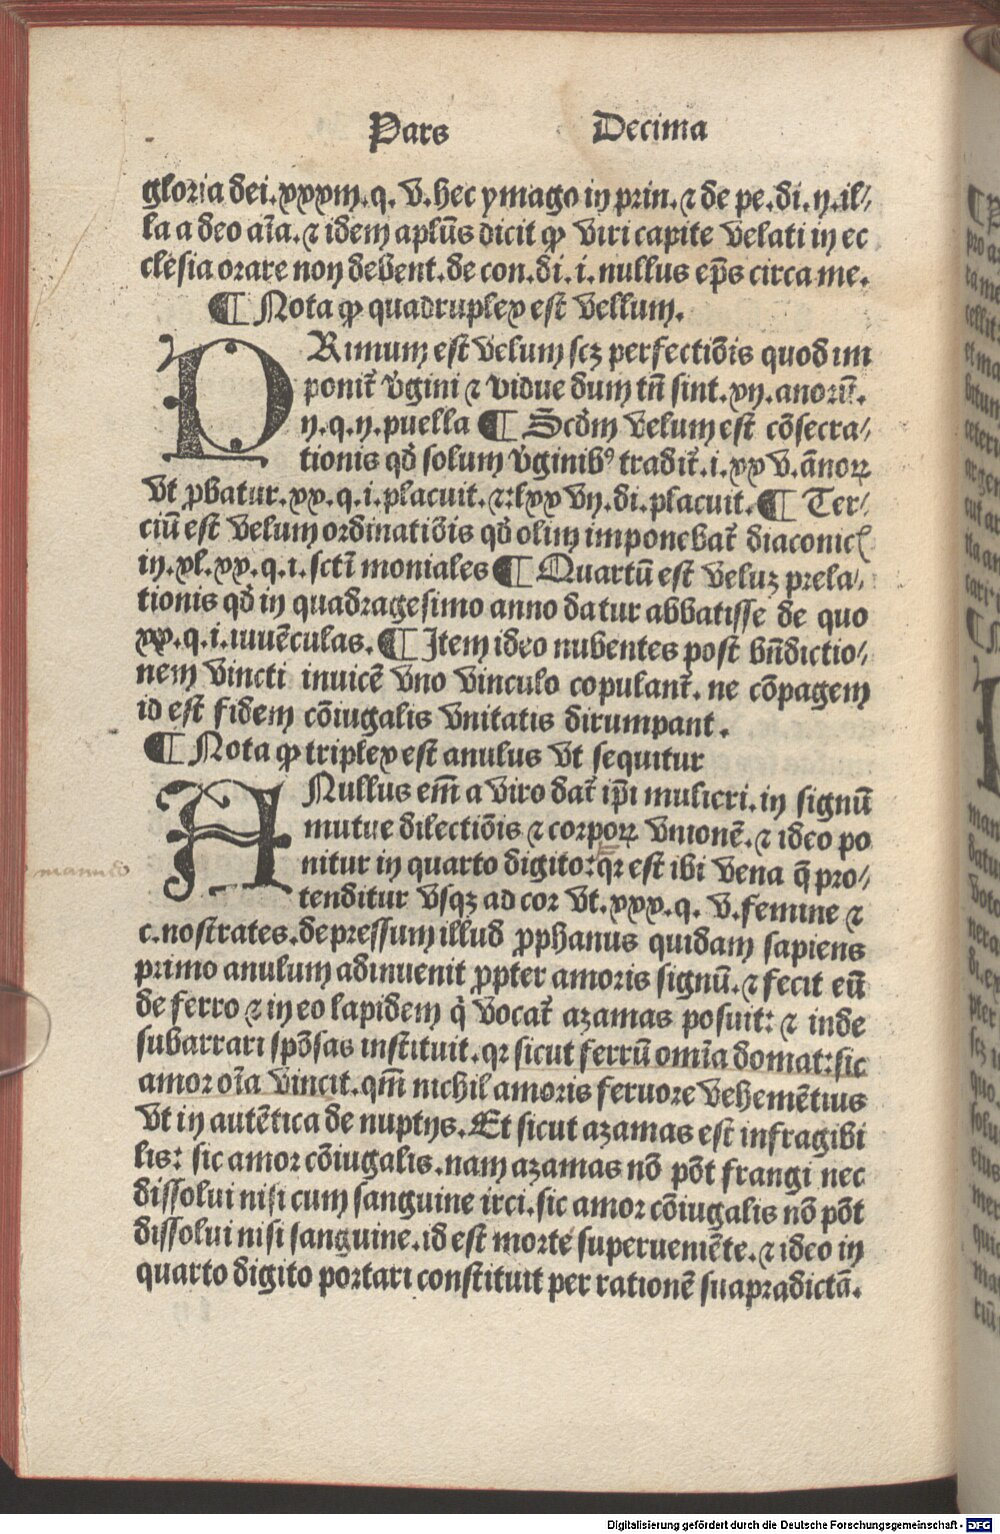 Pars Decima
gloria dei.xxxiij.q. v.hec ymago in prin.⁊ de pe.di.ij.il⸗
la a deo aīa.⁊ idem aplūs dicit ꝙ viri capite velati in ec
clesia orare non debent.de con.di.i.nullus ep̄s circa me.
¶ Nota ꝙ quadruplex est vellum.
PRimum est velum scꝫ perfectiōis quod im
ponit᷑ v̓gini ⁊ vidue dum tn̄ sint.xij.anorū.
ij.q.ij.puella ¶ Scd̓m velum est cōsecra⸗
tionis qd̓ solum v̓ginibꝰ tradit᷑.i.xx v.ānoꝝ
vt ꝓbatur.xx.q.i.placuit.⁊.lxx vij.di.placuit.¶ Ter⸗
ciū est velum ordinatiōis qd̓ olim imponebat᷑ diaconic̄
in.xl.xx.q.i.sctī moniales ¶ Quartū est veluz prela⸗
tionis qd̓ in quadragesimo anno datur abbatisse de quo
xx.q.i.iuuēculas.¶ Item ideo nubentes post bn̄dictio⸗
nem vincti inuicē vno vinculo copulant᷑. ne cōpagem
id est fidem cōiugalis vnitatis dirumpant.
¶ Nota ꝙ triplex est anulus vt sequitur
ANullus em̄ a viro dat᷑ ip̄i mulieri.in signū
mutue dilectiōis ⁊ corpoꝝ vnionē.⁊ ideo po
nitur in quarto digito:qꝛ est ibi vena q̄ pro⸗
manu
tenditur vsqꝫ ad cor vt.xxx.q. v.femine ⁊
c.nostrates.depressum illud ꝓphanus quidam sapiens
primo anulum adinuenit ꝓpter amoris signū.⁊ fecit eū
de ferro ⁊ in eo lapidem q̓ vocat᷑ azamas posuit: ⁊ inde
subarrari spōsas instituit.qꝛ sicut ferrū omīa domat:sic
amor oīa vincit.qm̄ nichil amoris feruore vehemētius
vt in autētica de nuptijs.Et sicut azamas est infragibi
lis: sic amor cōiugalis.nam azamas nō pōt frangi nec
dissolui nisi cum sanguine irci.sic amor cōiugalis nō pōt
dissolui nisi sanguine.id est morte superueniēte.⁊ ideo in
quarto digito portari constituit per rationē suapradictā.
Digitalisierung gefördert durch die Deutsche Forschungsgemeinschaft - DFG